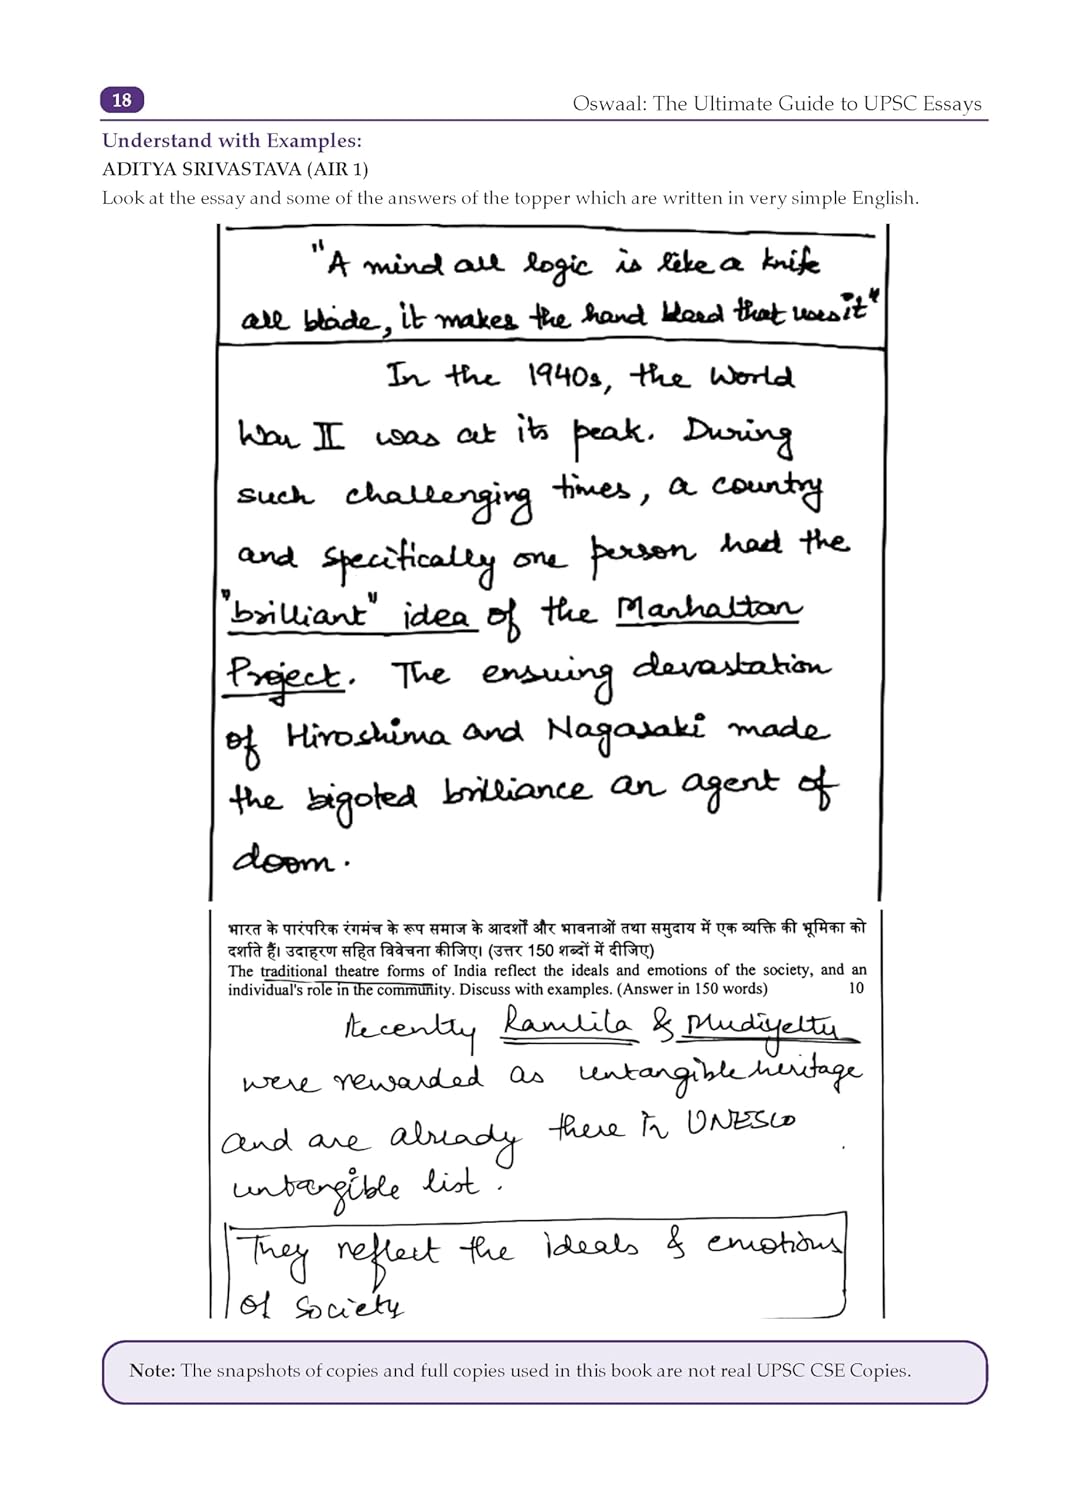 18
Oswaal: The Ultimate Guide to UPSC Essays
Understand with Examples:
ADITYA SRIVASTAVA (AIR 1)
Look at the essay and some of the answers of the topper which are written in very simple English.
"A mind all logic is like a knife
all blade, it makes the hand bleed that uses it"
In the 1940s, the World
War II was at its peak. During
such challenging times, a country
and specifically one person had the
"brilliant" idea of the Manhattan
Project. The ensuing devastation
of Hiroshima and Nagasaki made
the bigoted brilliance an agent of
doom.
भारत के पारंपरिक रंगमंच के रूप समाज के आदर्शों और भावनाओं तथा समुदाय में एक व्यक्ति की भूमिका को
दर्शाते हैं। उदाहरण सहित विवेचना कीजिए। (उत्तर 150 शब्दों में दीजिए)
The traditional theatre forms of India reflect the ideals and emotions of the society, and an
individual's role in the community. Discuss with examples. (Answer in 150 words) 10
Recently Ramlila & Mudiyettu
were rewarded as untangible heritage
and are already there in UNESCO
untangible list.
They reflect the ideals & emotions
of society
Note: The snapshots of copies and full copies used in this book are not real UPSC CSE Copies.